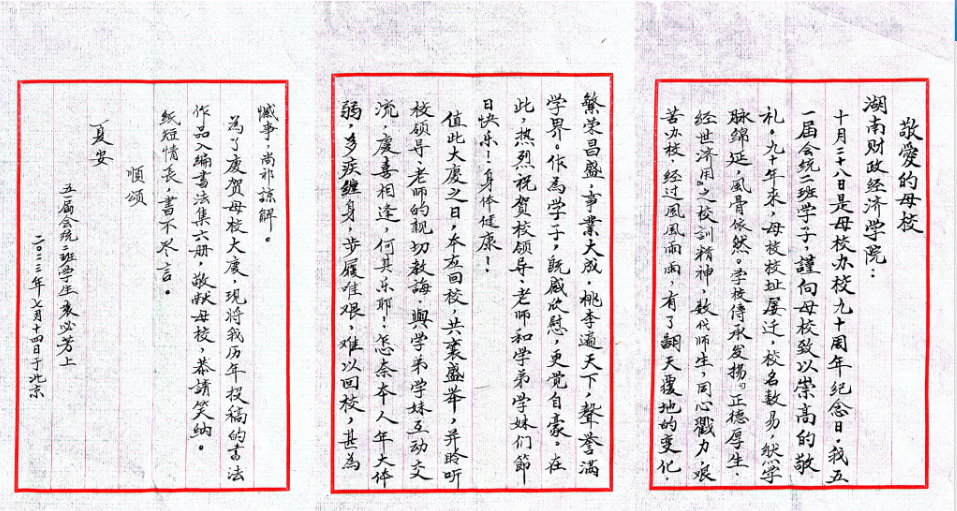 敬爱的母校
湖南财政经济学院：
十月二十八日是母校办校九十周年纪念日，我五
一届会统二班学子，謹向母校致以崇高的敬
礼。九十年来，母校校址屡迁，校名数易，然学
脉绵延，风骨依然。学校传承发扬“正德厚生·
经世济用”之校训精神，数代师生，同心戮力，艰
苦办校，经过风风雨雨，有了翻天覆地的变化，
繁荣昌盛，事業大成，桃李遍天下，聲誉满
学界。作為学子，既感欣慰，更觉自豪。在
此，热烈祝贺校领导、老师和学弟学妹们節
日快乐！身体健康！
值此大庆之日，本应回校，共襄盛举，并聆听
校领导、老师的親切教誨，與学弟学妹互动交
流，慶喜相逢，何其乐耶！怎奈本人年大体
弱，多疾缠身，步履唯艰，难以回校，甚為
憾事，尚祁諒解。
為了慶賀母校大慶，现将我历年投稿的書法
作品入编書法集六册，敬献母校，恭請笑纳。
紙短情长，書不尽言。
順頌
夏安
五一届会统二班學生袁必芳上
二〇二三年七月十四日于北京